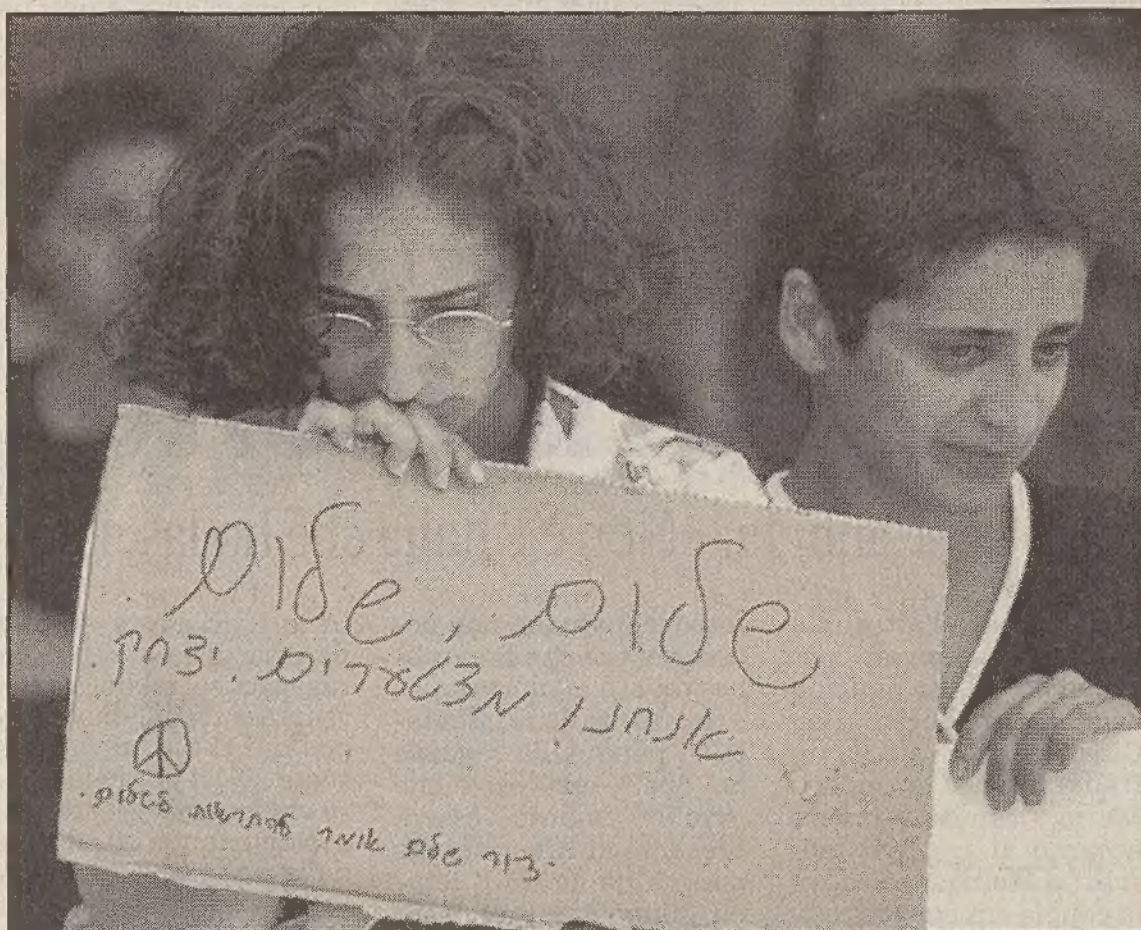 שלום, שלום.
אנחנו מצטערים. יצחק.
דור שלם אומר להתראות לשלום.